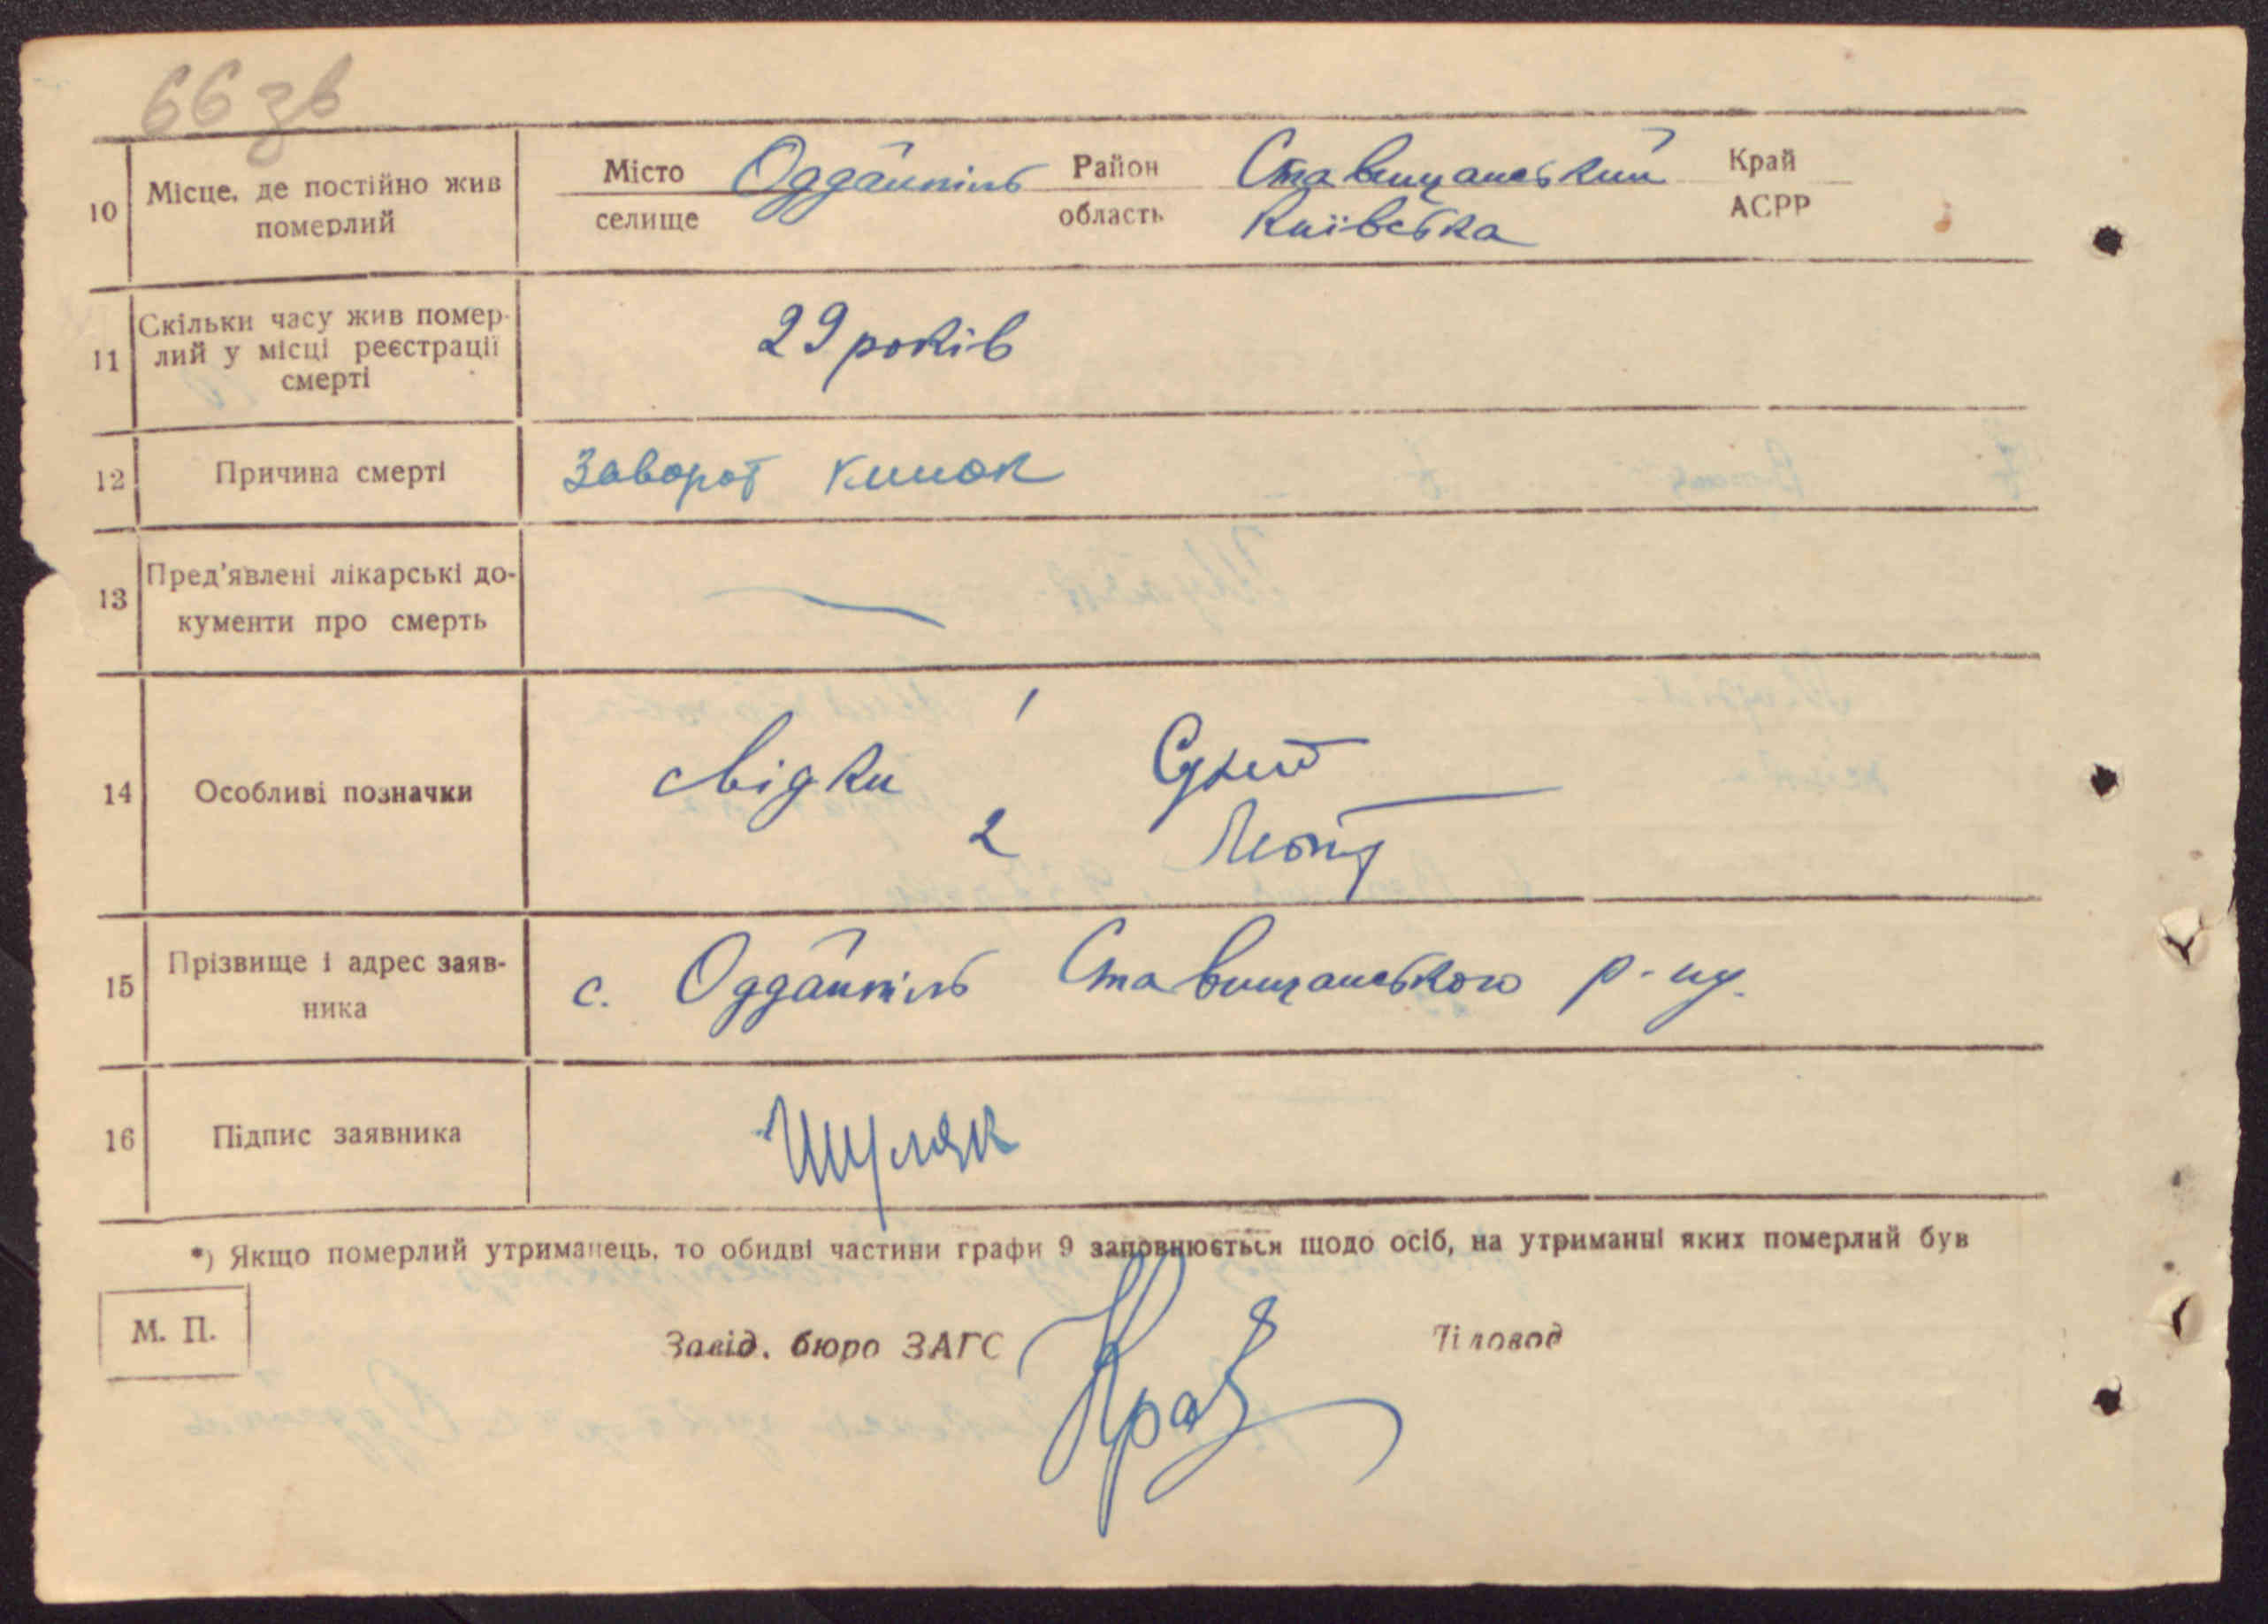 66 зв
10 Місце, де постійно жив померлий
Місто Оддайпіль Район Ставищанський Край
селище область Київська АСРР
11 Скільки часу жив помер-
лий у місці реєстрації
смерті
29 років
12 Причина смерті Заворот кишок
13 Пред'явлені лікарські до-
кументи про смерть
14 Особливі позначки
свідки 1
2
15 Прізвище і адрес заяв-
ника
с. Оддайпіль Ставищанського р-ну.
16 Підпис заявника Шуляк
*) Якщо померлий утриманець, то обидві частини графи 9 заповнюється щодо осіб, на утриманні яких померлий був
М. П. Завід. бюро ЗАГС Діловод